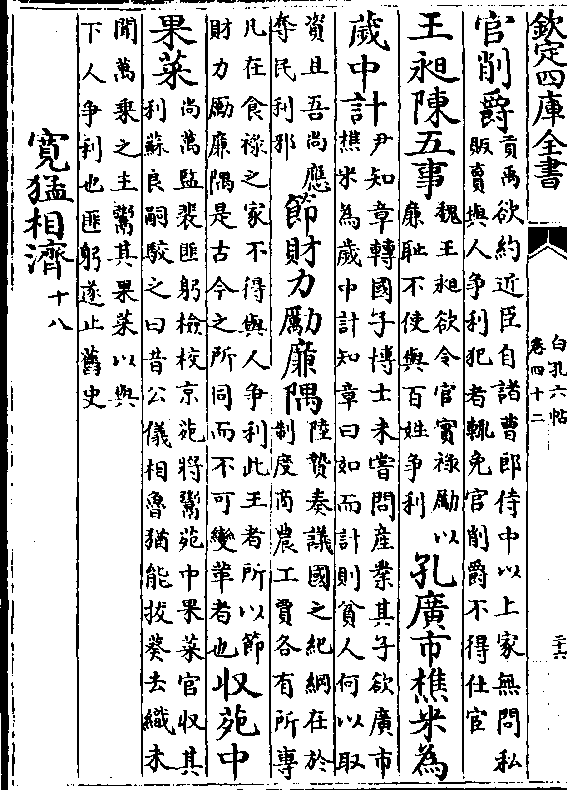 欽定四庫全書
白孔六帖
卷四十二
二十六
官削爵
貢禹欲約近臣自諸曹郎侍中以上家無問私
販賣與人争利犯者輒免官削爵不得仕宦
王昶陳五事
魏王昶欲令官實祿勵以
廉恥不使與百姓争利
孔廣市樵米為
歲中計
尹知章轉國子博士未嘗問産業其子欲廣市
樵米為歲中計知章曰如而計則貧人何以取
資且吾尚應
奪民利邪
節財力勵廉隅
陸贄奏議國之紀綱在於
制度商農工賈各有所専
凡在食祿之家不得與人争利此王者所以節
財力勵廉隅是古今之所同而不可變革者也
收苑中
果菜
尚萬監裴匪躬檢校京苑將鬻苑中果菜官收其
利蘇良嗣駮之曰昔公儀相魯猶能拔葵去織未
聞萬乗之主鬻其果菜以與
下人争利也匪躬遂止舊史
寛猛相濟十八